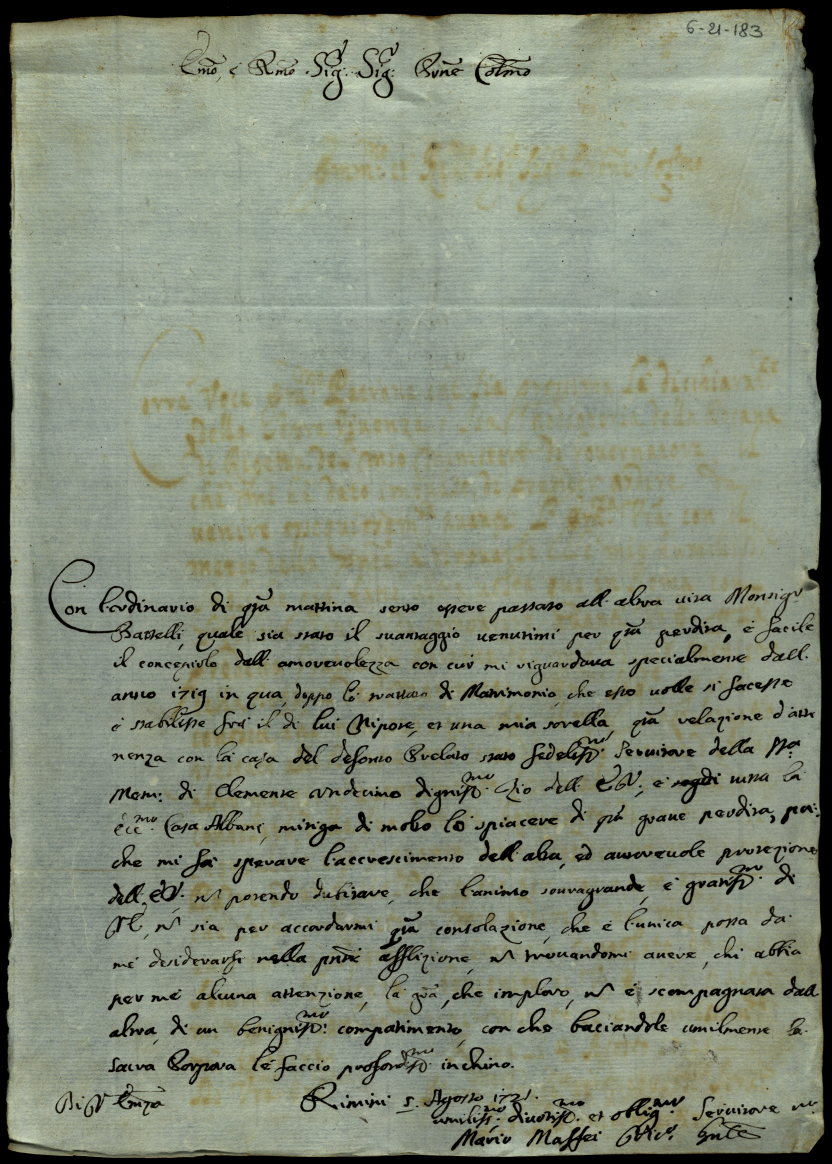 6-21-183
Emo, e Rmo Sig. Sig. Prone Colmo
Con l'ordinario di qta mattina sento essere passato all'altra vita Monsigr
Battelli, quale sia stato il svantaggio venutimi per qta perdita, è facile
il concepirlo dall'amorevolezza con cui mi riguardava specialmente dall'
anno 1719 in qua, doppo lo trattato di Matrimonio, che esso volle si facesse
e stabilisse frà il di lui Nipote, et una mia sorella, qta relazione d'atte
nenza con la casa del defonto Prelato stato fedelissmo Servitore della Sta
Mem: di Clemente Undecimo dignissmo Zio dell'EV:, e di tutta la
Eccma Casa Albani, mitiga di molto lo spiacere di qta grave perdita, poi:
che mi fà sperare l'accrescimento dell'alta, ed autorevole protezione
dell'EV. nn potendo dubitare, che l'animo sovragrande, e gratissmo di
VE, nn sia per accordarmi qta consolazione, che è l'unica possa da
me desiderarsi nella pnte afflizione, nn trovandomi avere, chi abbia
per me alcuna attenzione, la gra, che imploro, nn è scompagnata dall'
altra, di un benignissmo compatimento, con che baciandole umilmente la
Sacra Porpora le faccio profondissmo inchino.
Di V Emza Rimini 5. Agosto 1725.
umilissmo divotissmo et obligmo Servitore vo
Mario Maffei